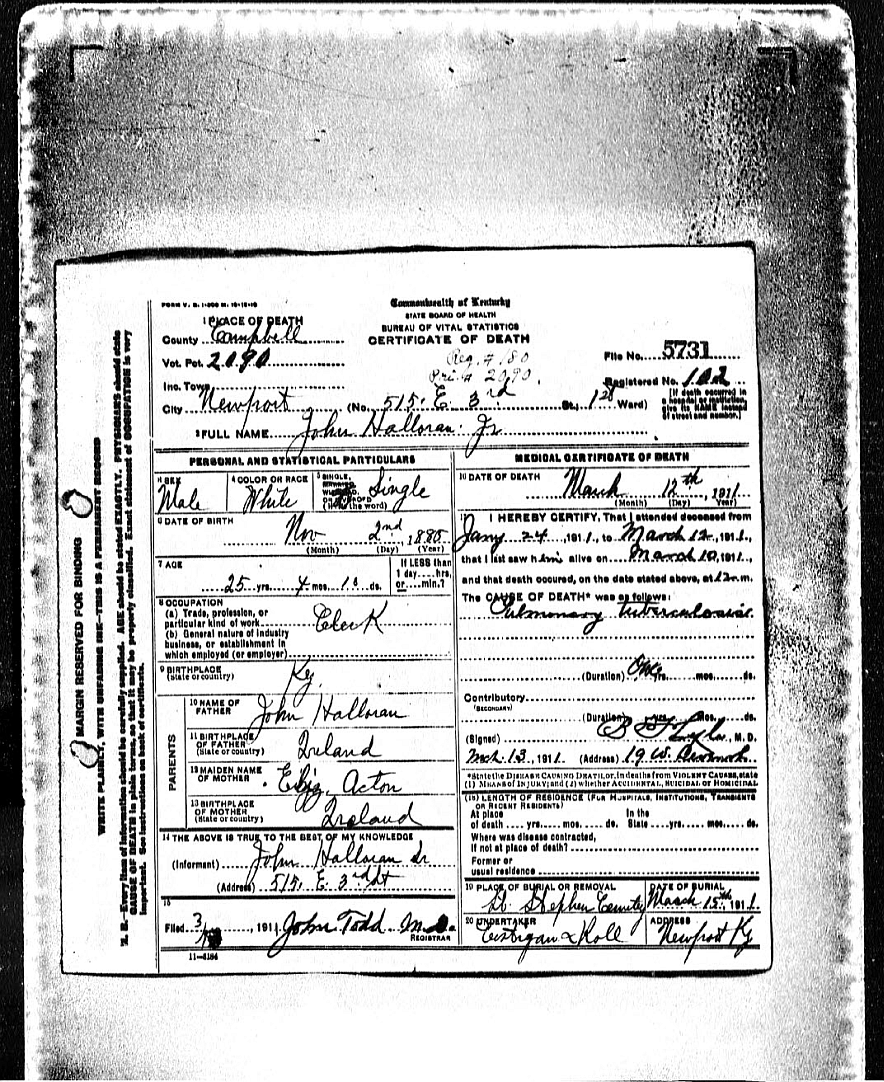 FORM V. S. 1-
Commonwealth of Kentucky
STATE BOARD OF HEALTH
BUREAU OF VITAL STATISTICS
CERTIFICATE OF DEATH
1 PLACE OF DEATH
County Campbell
Vot. Pct. 2090
Reg. # 180
Pri. # 2090.
File No. 5731
Inc. Town
Registered No. 102
City Newport (No. 515. E. 3rd St., 1st Ward)
[If death occurred in a hospital or institution, give its NAME instead of street and number.]
2 FULL NAME John Halloran Jr
PERSONAL AND STATISTICAL PARTICULARS
3 SEX Male
4 COLOR OR RACE White
5 SINGLE, MARRIED, WIDOWED, OR DIVORCED (Write the word) Single
6 DATE OF BIRTH
Nov 2nd, 1885
(Month) (Day) (Year)
7 AGE
25 yrs. 4 mos. 10 ds.
If LESS than 1 day....hrs. or....min.?
8 OCCUPATION
(a) Trade, profession, or
particular kind of work Clerk
(b) General nature of industry
business, or establishment in
which employed (or employer)
9 BIRTHPLACE
(State or country) Ky.
PARENTS
10 NAME OF
FATHER John Halloran
11 BIRTHPLACE
OF FATHER
(State or country) Ireland
12 MAIDEN NAME
OF MOTHER Eliz. Acton
13 BIRTHPLACE
OF MOTHER
(State or country) Ireland
14 THE ABOVE IS TRUE TO THE BEST OF MY KNOWLEDGE
(Informant) John Halloran Sr
(Address) 515. E. 3rd St
15
Filed 3/ , 1911 John Todd M.D.
REGISTRAR
11-5184
MEDICAL CERTIFICATE OF DEATH
16 DATE OF DEATH
March 12th, 1911
(Month) (Day) Year)
17 I HEREBY CERTIFY, That I attended deceased from
Jany 24, 1911, to March 12, 1911,
that I last saw him alive on March 10, 1911,
and that death occured, on the date stated above, at 12 m.
The CAUSE OF DEATH* was as follows:
Pulmonary tuberculosis.
(Duration) One yrs. mos. ds.
Contributory
(SECONDARY)
(Duration) yrs. mos. ds.
(Signed) , M. D.
Mch. 13, 1911 (Address) 19 W.
*State the DISEASE CAUSING DEATH, or, in deaths from VIOLENT CAUSES, state
(1) MEANS OF INJURY; and (2) whether ACCIDENTAL, SUICIDAL or HOMICIDAL
(18) LENGTH OF RESIDENCE (FOR HOSPITALS, INSTITUTIONS, TRANSIENTS
OR RECENT RESIDENTS)
At place of death ....yrs.....mos.....ds. In the State ....yrs.....mos.....ds.
Where was disease contracted,
If not at place of death?
Former or
usual residence
19 PLACE OF BURIAL OR REMOVAL
St. Stephen
DATE OF BURIAL
March 15th, 1911.
20 UNDERTAKER
Costigan & Roll
ADDRESS
Newport Ky
MARGIN RESERVED FOR BINDING
WRITE PLAINLY, WITH UNFADING INK—THIS IS A PERMANENT RECORD
N. B.—Every item of information should be carefully supplied. AGE should be stated EXACTLY. PHYSICIANS should state
CAUSE OF DEATH in plain terms, so that it may be properly classified. Exact statement of OCCUPATION is very
important. See instructions on back of certificate.